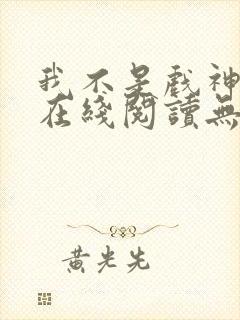 我不是戲神
在綫閱讀無
黃光先